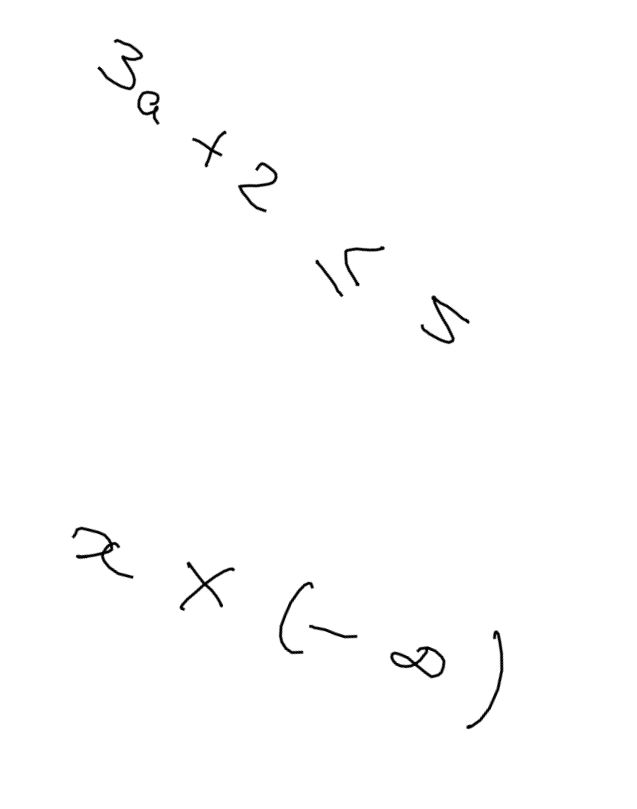 3a + 2 ≤ 5
x × (- ∞)